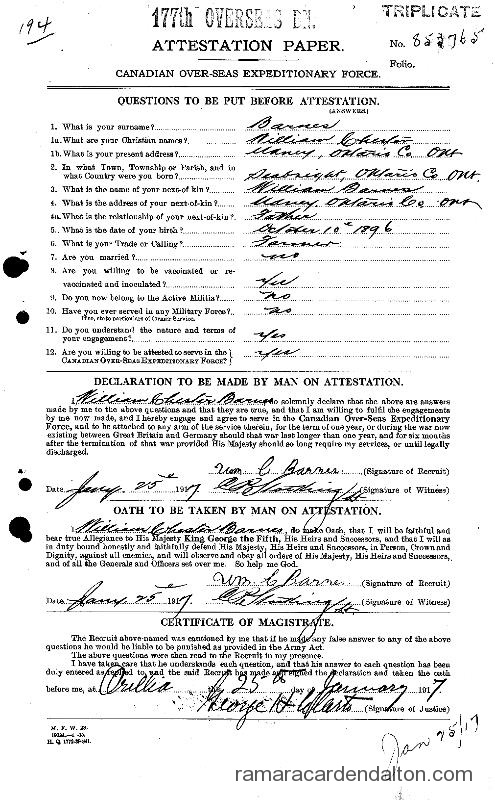 194
177th OVERSEAS BN.
TRIPLICATE
ATTESTATION PAPER.
No. 853765
Folio.
CANADIAN OVER-SEAS EXPEDITIONARY FORCE.
QUESTIONS TO BE PUT BEFORE ATTESTATION.
(ANSWERS)
1. What is your surname? Barnes
1a. What are your Christian names? William Chester
1b. What is your present address? Ontario Co Ont
2. In what Town, Township or Parish, and in
what Country were you born? Seabright, Ontario Co Ont.
3. What is the name of your next-of kin? William Barnes
4. What is the address of your next-of-kin? Ontario Co Ont
4a. What is the relationship of your next-of-kin? Father
5. What is the date of your birth? October 10th 1896
6. What is your Trade or Calling? Farmer
7. Are you married? no
8. Are you willing to be vaccinated or re-
vaccinated and inoculated? Yes
9. Do you now belong to the Active Militia? no
10. Have you ever served in any Military Force? no
If so, state particulars of former Service.
11. Do you understand the nature and terms of
your engagement? Yes
12. Are you willing to be attested to serve in the
CANADIAN OVER-SEAS EXPEDITIONARY FORCE? Yes
DECLARATION TO BE MADE BY MAN ON ATTESTATION.
I, William Chester Barnes do solemnly declare that the above are answers
made by me to the above questions and that they are true, and that I am willing to fulfil the engagements
by me now made, and I hereby engage and agree to serve in the Canadian Over-Seas Expeditionary
Force, and to be attached to any arm of the service therein, for the term of one year, or during the war now
existing between Great Britain and Germany should that war last longer than one year, and for six months
after the termination of that war provided His Majesty should so long require my services, or until legally
discharged.
Wm C Barnes (Signature of Recruit)
Date Jany 25th 1917 (Signature of Witness)
OATH TO BE TAKEN BY MAN ON ATTESTATION.
I, William Chester Barnes, do make Oath, that I will be faithful and
bear true Allegiance to His Majesty King George the Fifth, His Heirs and Successors, and that I will as
in duty bound honestly and faithfully defend His Majesty, His Heirs and Successors, in Person, Crown and
Dignity, against all enemies, and will observe and obey all orders of His Majesty, His Heirs and Successors,
and of all the Generals and Officers set over me. So help me God.
Wm C Barnes (Signature of Recruit)
Date Jany 25th 1917 (Signature of Witness)
CERTIFICATE OF MAGISTRATE.
The Recruit above-named was cautioned by me that if he made any false answer to any of the above
questions he would be liable to be punished as provided in the Army Act.
The above questions were then read to the Recruit in my presence.
I have taken care that he understands each question, and that his answer to each question has been
duly entered as replied to, and the said Recruit has made and signed the declaration and taken the oath
before me, at Orillia this 25th day of January 1917
George H (Signature of Justice)
M. F. W. 23.
Jan 25/17
ramaracardendalton.com